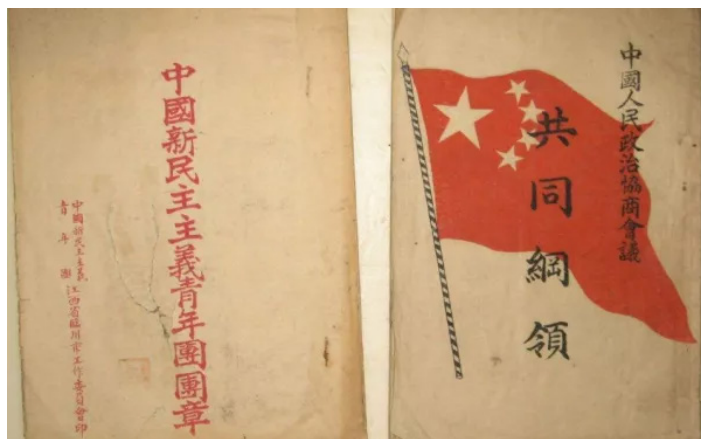 中國新民主主義青年團團章
中國新民主主義
青年團 江西省臨川市工作委員會印
中國人民政治協商會議
共同綱領